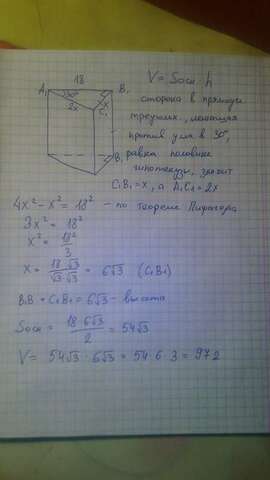 18
V = Sосн h
A₁ 30° B₁
2x x
C₁
B
сторона в прямоуг
треугольн., лежащая
против угла в 30°,
равна половине
гипотенузы, значит
C₁B₁ = x, а A₁C₁ = 2x
4x² - x² = 18² - по теореме Пифагора
3x² = 18²
x² = 18²/3
x = 18·√3/√3·√3 = 6√3 (C₁B₁)
B₁B = C₁B₁ = 6√3 - высота
Sосн = 18·6√3/2 = 54√3
V = 54√3 · 6√3 = 54·6·3 = 972